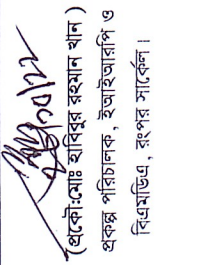 (প্রকৌ:মোঃ হাবিবুর রহমান খান )
প্রকল্প পরিচালক, ইআইআরপি ও
বিএমডিএ, রংপর সার্কেল।